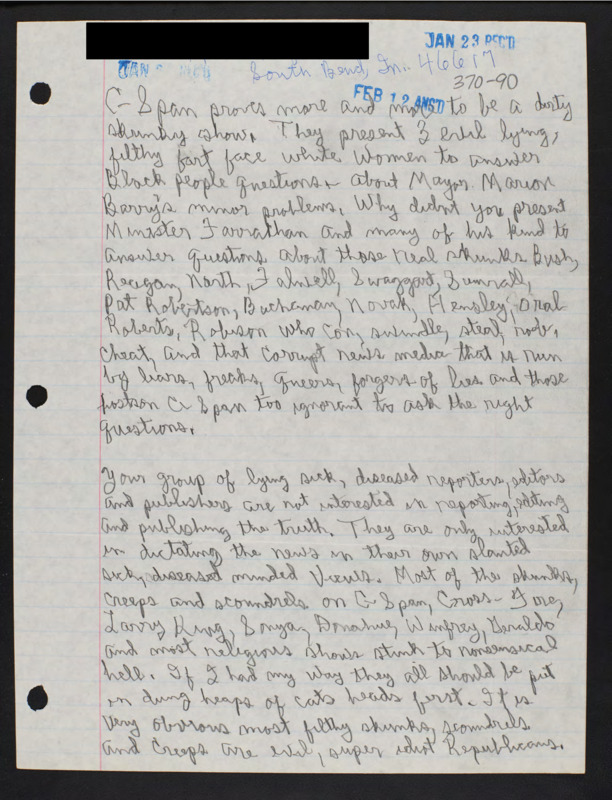 JAN 23 REC'D
South Bend, In.. 46617
370-90
FEB 12 ANS'D
C-Span proves more and more to be a dirty
skunky show. They present 3 evil lying,
filthy fart face white women to answer
Black people questions about Mayor Marion
Barry's minor problems. Why didnt you present
Minister Farrathan and many of his kind to
answer questions about those real skunks Bush,
Reagan, North, Falwell, Swaggart, Sumrall,
Pat Robertson, Buchanan, Novak, Hensley, Oral
Roberts, Robison who con, swindle, steal, rob,
cheat, and that corrupt news media that is run
by liars, freaks, queers, forgers of lies and those
hosts on C-Span too ignorant to ask the right
questions.
Your group of lying sick, diseased reporters, editors
and publishers are not interested in reporting, editing
and publishing the truth. They are only interested
in dictating the news in their own slanted
sick, diseased minded views. Most of the skunks,
creeps and scoundrels on C-Span, Cross-Fire,
Larry King, Sonya, Donahue, Winfrey, Geraldo
and most religious shows stink to nonsensical
hell. If I had my way they all should be put
in dung heaps of cats heads first. It is
very obvious most filthy skunks, scoundrels
and creeps are evil, super idiot Republicans.